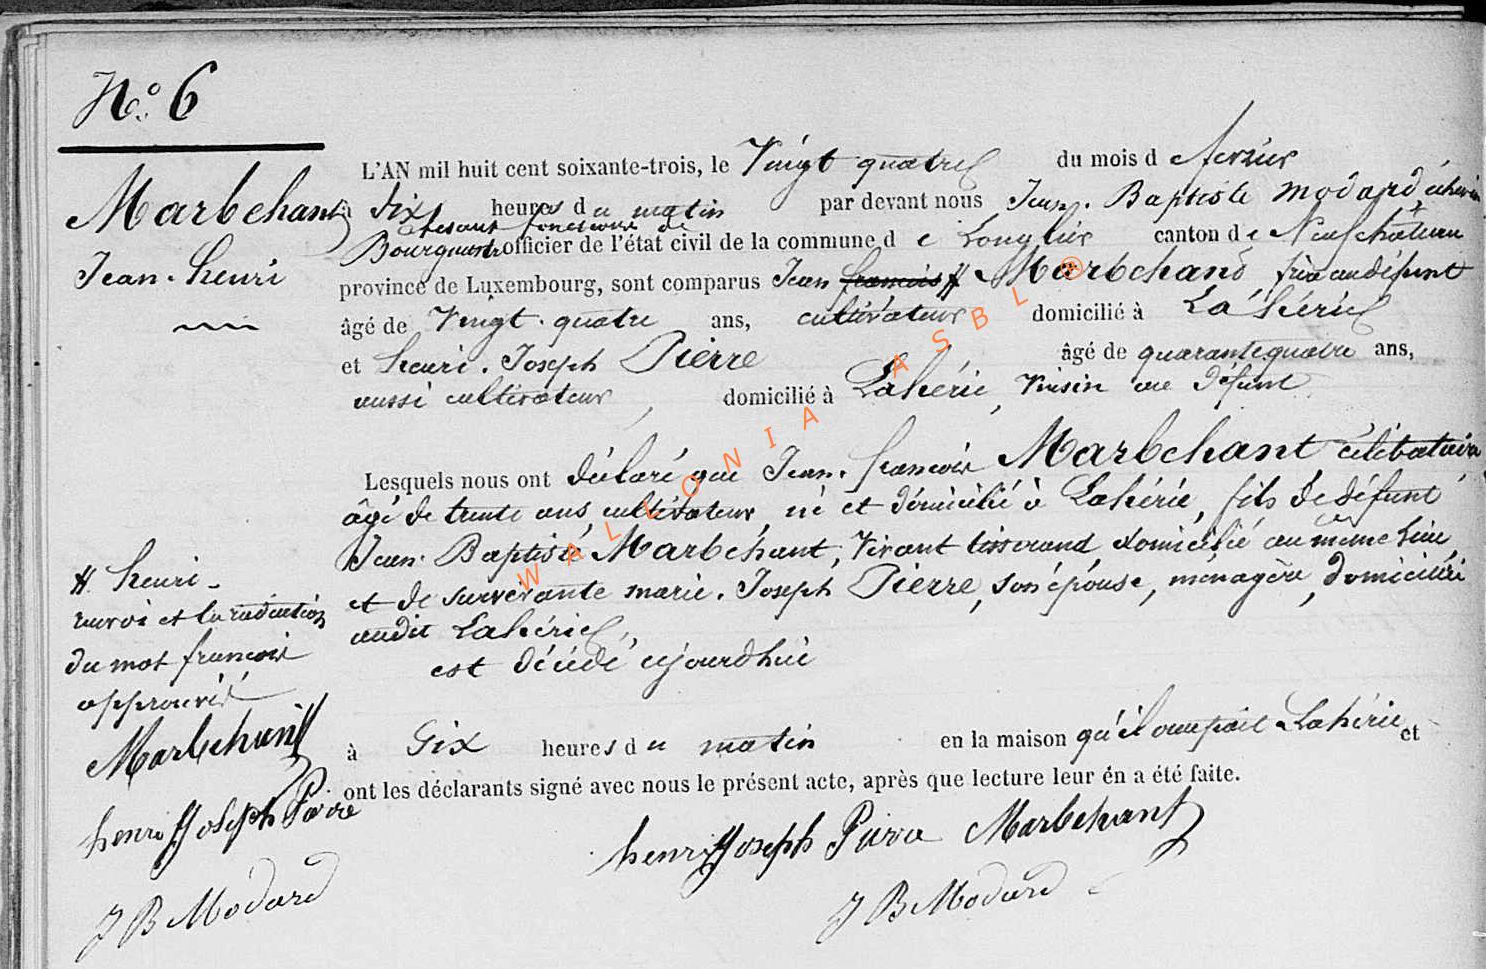 N° 6
Marbehant
Jean-henri
L'AN mil huit cent soixante-trois, le Vingt quatre du mois de fevrier
à dix heures du matin par devant nous Jean-Baptiste Modard, échevin
faisant fonctions de
Bourgmestre officier de l'état civil de la commune de Longlier canton de Neufchâteau
province de Luxembourg, sont comparus Jean francois # Marbehant frère au défunt
âgé de Vingt-quatre ans, cultivateur domicilié à Lahérie
et henri-Joseph Pierre âgé de quarante quatre ans,
aussi cultivateur, domicilié à Lahérie, Voisin au défunt
Lesquels nous ont déclaré que Jean-francois Marbehant célibataire
âgé de trente ans, cultivateur, né et domicilié à Lahérie, fils de défunt
Jean-Baptiste Marbehant, Vivant tisserand domicilié au même lieu
et de survivante marie-Joseph Pierre, son épouse, ménagère, domiciliée
audit Lahérie,
est décédé ajourdhui
à Six heures du matin en la maison qu'il occupait Lahérie et
ont les déclarants signé avec nous le présent acte, après que lecture leur en a été faite.
henri Joseph Pierre Marbehant
J B Modard
# henri-
renvoi et la radiation
du mot francois
approuvés
Marbehant
henri Joseph Pierre
J B Modard
WALLONIA ASBL ®